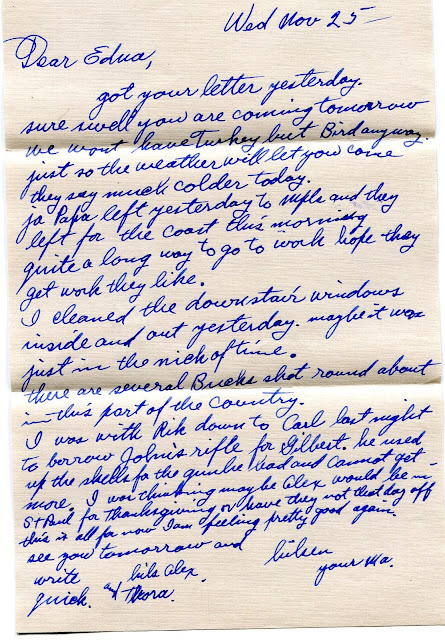 Wed Nov 25 —
Dear Edna,
got your letter yesterday.
sure swell you are coming tomorrow
we wont have turkey but Bird anyway.
just so the weather will let you come
they say much colder today.
ja Papa left yesterday to Mpls and they
left for the coast this morning
quite a long way to go to work hope they
get work they like.
I cleaned the downstair windows
inside and out yesterday. maybe it was
just in the nick of time.
there are several Bucks shot round about
in this part of the country.
I was with Rik down to Carl last night
to borrow John's rifle for Gilbert. he used
up the shells fo the gun he had and cannot get
more. I was thinking maybe Alex would be in
St Paul for Thanksgiving or have they not that day off
this is all for now I am feeling pretty good again.
see you tomorrow and hilsen
write hils Alex your Ma.
quick. and Thora.